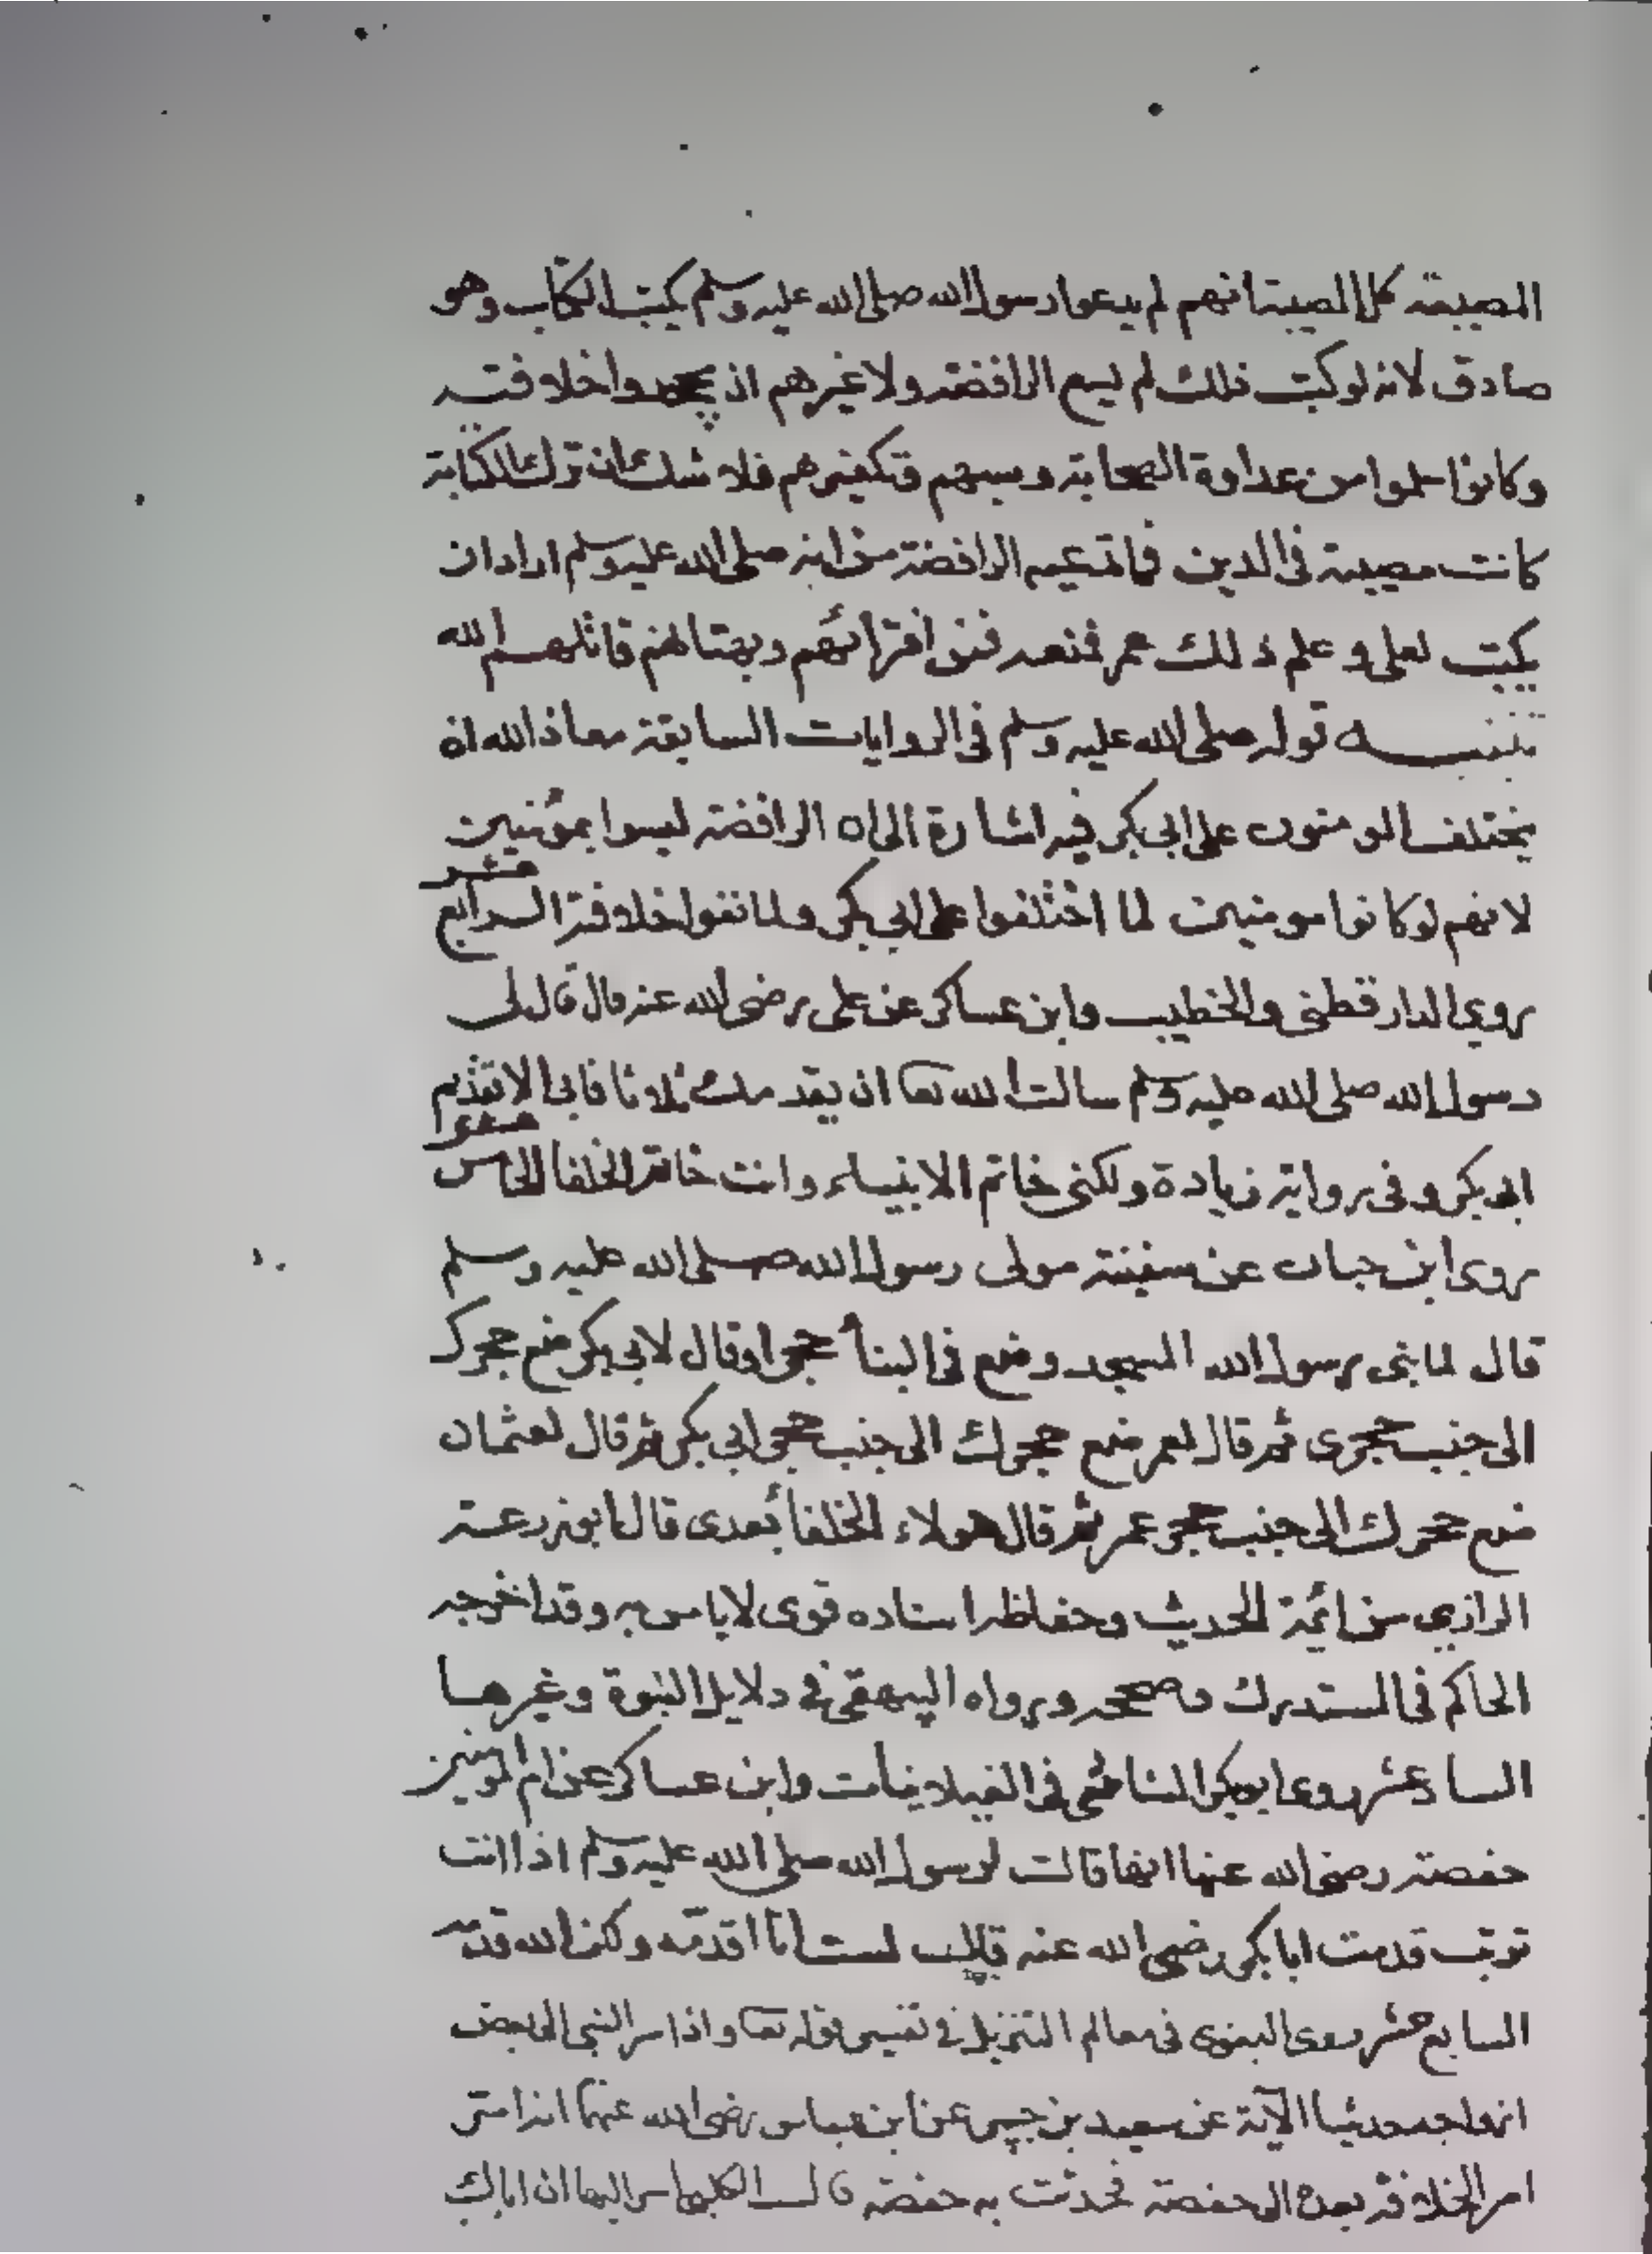 المصيبة كل المصيبة انهم لم يدعوا رسول الله صلى الله عليه وسلم يكتب الكتاب وهو
صادق لانه لو كتب ذلك لم يسع الرافضة ولا غيرهم ان يجحدوا خلافته
وكانوا سلموا من عداوة الصحابة وسبهم وتكفيرهم فلا شك ان ترك الكتابة
كانت مصيبة في الدين فما تدعيه الرافضة من انه صلى الله عليه وسلم اراد ان
يكتب لعلي وعلم ذلك عمر فمنعه فمن افترائهم وبهتانهم قاتلهم الله
تنبيه قوله صلى الله عليه وسلم في الروايات السابقة معاذ الله ان
يختلف المومنون على ابي بكر فيه اشارة الى ان الرافضة ليسوا بمؤمنين
لانهم لو كانوا مومنين لما اختلفوا على ابي بكر ولما نفوا خلافته الرابع عشر
روى الدارقطني والخطيب وابن عساكر عن علي رضي الله عنه قال قال لي
رسول الله صلى الله عليه وسلم سالت الله تعا ان يقدمك ثلاثا فابى الا تقديم
ابي بكر وفي رواية زيادة ولكني خاتم الانبياء وانت خاتم الخلفا الخامس عشر
روى ابن حبان عن سفينة مولى رسول الله صلى الله عليه وسلم
قال لما بنى رسول الله المسجد وضع في البنأ حجرا وقال لابي بكر ضع حجرك
الى جنب حجري ثم قال لعمر ضع حجرك الى جنب حجر ابي بكر ثم قال لعثمان
ضع حجرك الى جنب حجر عمر ثم قال هولاء الخلفأ بعدى قال ابو زرعة
الرازي من ائمة الحديث وحفاظه اسناده قوى لا باس به وقد اخرجه
الحاكم في المستدرك وصححه ورواه البيهقي في دلايل النبوة وغيرها
السادعشر روى ابو بكر الشافعي في الغيلانيات وابن عساكر عن ام المومنين
حفصة رضي الله عنها انها قالت لرسول الله صلى الله عليه وسلم اذا انت
قدمت ابا بكر رضي الله عنه قال لست انا اقدمه ولكن الله قدمه
السابع عشر روى البغوى في معالم التنزيل في تفسير قوله تعا واذ اسر النبي الى بعض
ازواجه حديثا الآية عن سعيد بن جبير عن ابن عباس رضي الله عنهما انه اسر
امر الخلافة بعده الى حفصة فحدثت به حفصة قال الكلبي اسر اليها ان اباك